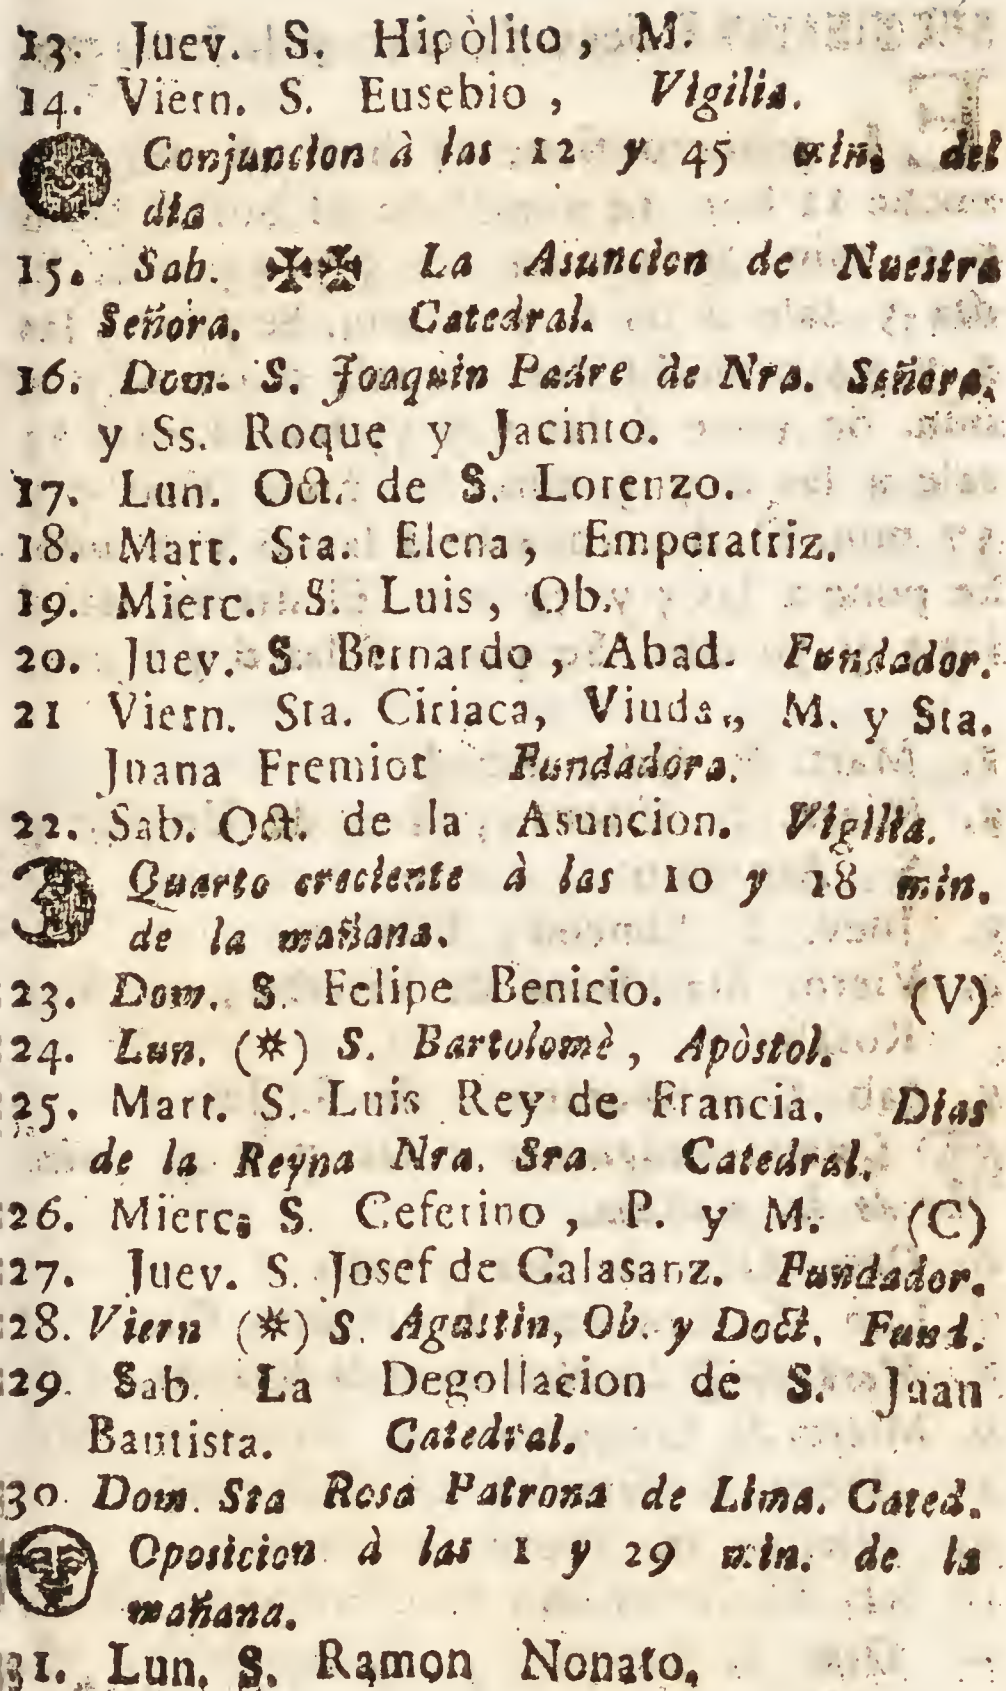 13. Juev. S. Hipòlito, M.
14. Viern. S. Eusebio, Vigilia.
Conjuncion à las 12 y 45 min. del
dia
15. Sab. ✠✠ La Asuncion de Nuestra
Señora. Catedral.
16. Dom. S. Joaquin Padre de Nra. Señora,
y Ss. Roque y Jacinto.
17. Lun. Oct. de S. Lorenzo.
18. Mart. Sta. Elena, Emperatriz.
19. Mierc. S. Luis, Ob.
20. Juev. S. Bernardo, Abad. Fundador.
21 Viern. Sta. Ciriaca, Viuda, M. y Sta.
Juana Fremiot Fundadora.
22. Sab. Oct. de la Asuncion. Vigilia.
Quarto creciente à las 10 y 18 min.
de la mañana.
23. Dom. S. Felipe Benicio. (V)
24. Lun. (*) S. Bartolomè, Apòstol.
25. Mart. S. Luis Rey de Francia. Dias
de la Reyna Nra. Sra. Catedral.
26. Mierc. S. Ceferino, P. y M. (C)
27. Juev. S. Josef de Calasanz. Fundador.
28. Viern (*) S. Agustin, Ob. y Doct. Fund.
29. Sab. La Degollacion de S. Juan
Bautista. Catedral.
30 Dom. Sta Rosa Patrona de Lima. Cated.
Oposicion à las 1 y 29 min. de la
mañana.
31. Lun. S. Ramon Nonato.